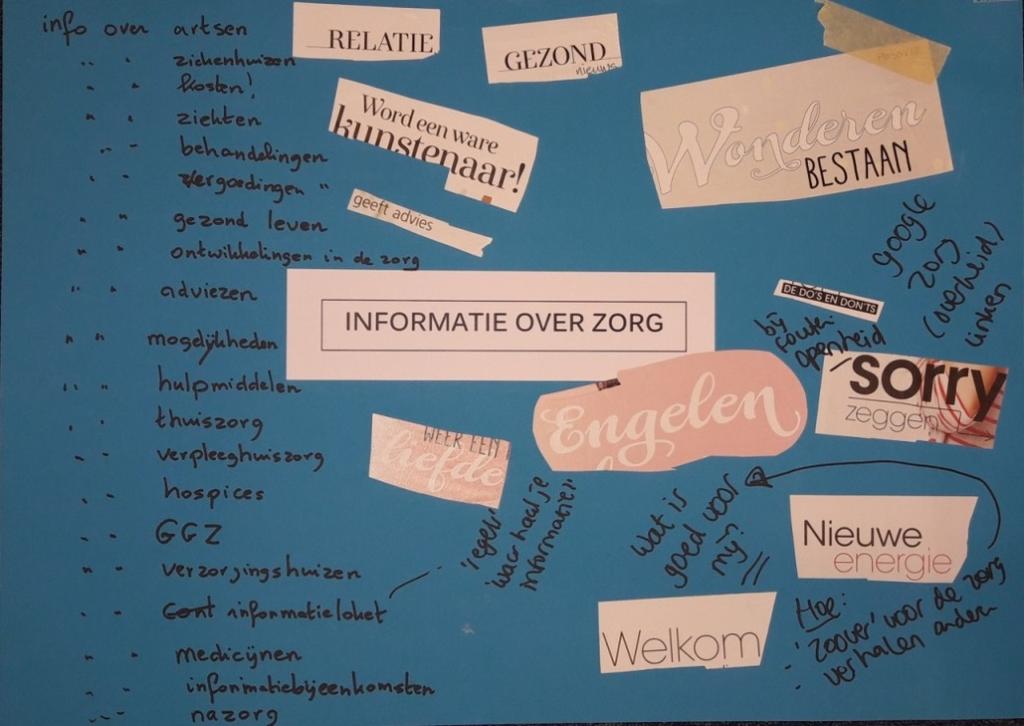 info over artsen
" " ziekenhuizen
" " kosten!
" " ziekten
" " behandelingen
" " vergoedingen "
" " gezond leven
" " ontwikkelingen in de zorg
" " adviezen
" " mogelijkheden
" " hulpmiddelen
" " thuiszorg
" " verpleeghuiszorg
" " hospices
" " GGZ
" " verzorgingshuizen
" " Cont informatieloket
" " medicijnen
" " informatiebijeenkomsten
" " nazorg
RELATIE
GEZOND
nieuws
Word een ware
kunstenaar!
geeft advies
Wonderen
BESTAAN
google
zorg
(overheid)
linken
INFORMATIE OVER ZORG
DE DO'S EN DON'TS
bij
fouten
openheid
sorry
zeggen
Engelen
WEER EEN
liefde
'regels'
waar haal je
informatie?
Wat is
goed voor
mij?
Nieuwe
energie
Welkom
Hoe:
- 'zoover' voor de zorg
- verhalen andern